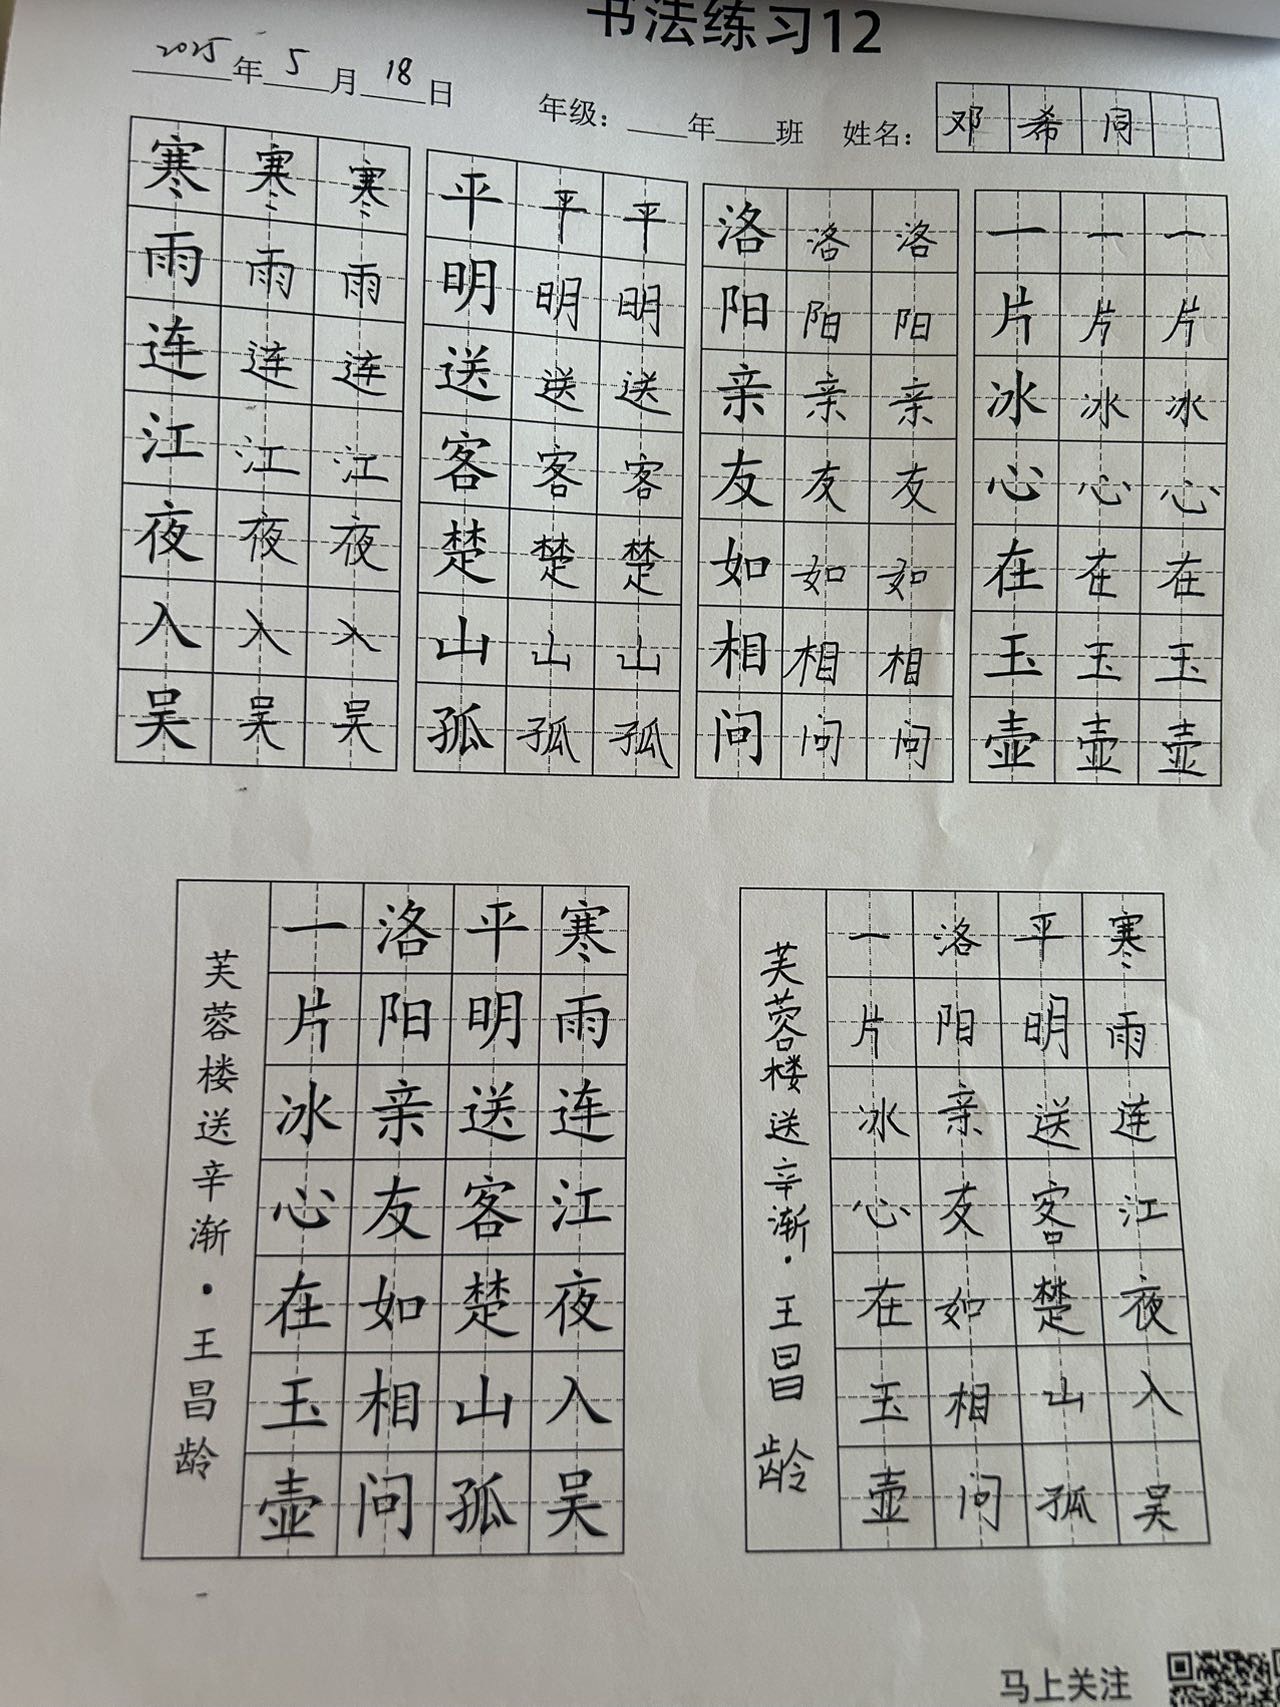 书法练习12
2025年5月18日 年级：____年____班 姓名：邓希同
寒寒寒 平平平 洛洛洛 一一一
雨雨雨 明明明 阳阳阳 片片片
连连连 送送送 亲亲亲 冰冰冰
江江江 客客客 友友友 心心心
夜夜夜 楚楚楚 如如如 在在在
入入入 山山山 相相相 玉玉玉
吴吴吴 孤孤孤 问问问 壶壶壶
寒雨连江夜入吴
平明送客楚山孤
洛阳亲友如相问
一片冰心在玉壶
芙蓉楼送辛渐·王昌龄
寒雨连江夜入吴
平明送客楚山孤
洛阳亲友如相问
一片冰心在玉壶
芙蓉楼送辛渐·王昌龄
马上关注